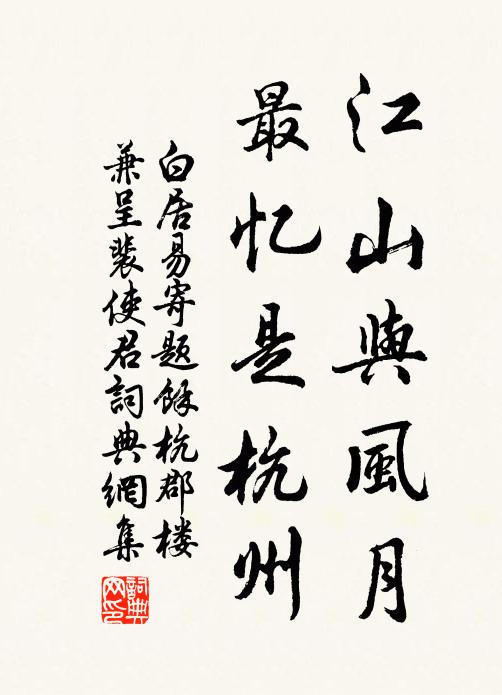 江山與風月
最忆是杭州
白居易寄題餘杭郡楼
兼呈裴使君詞典網集
詞典网印